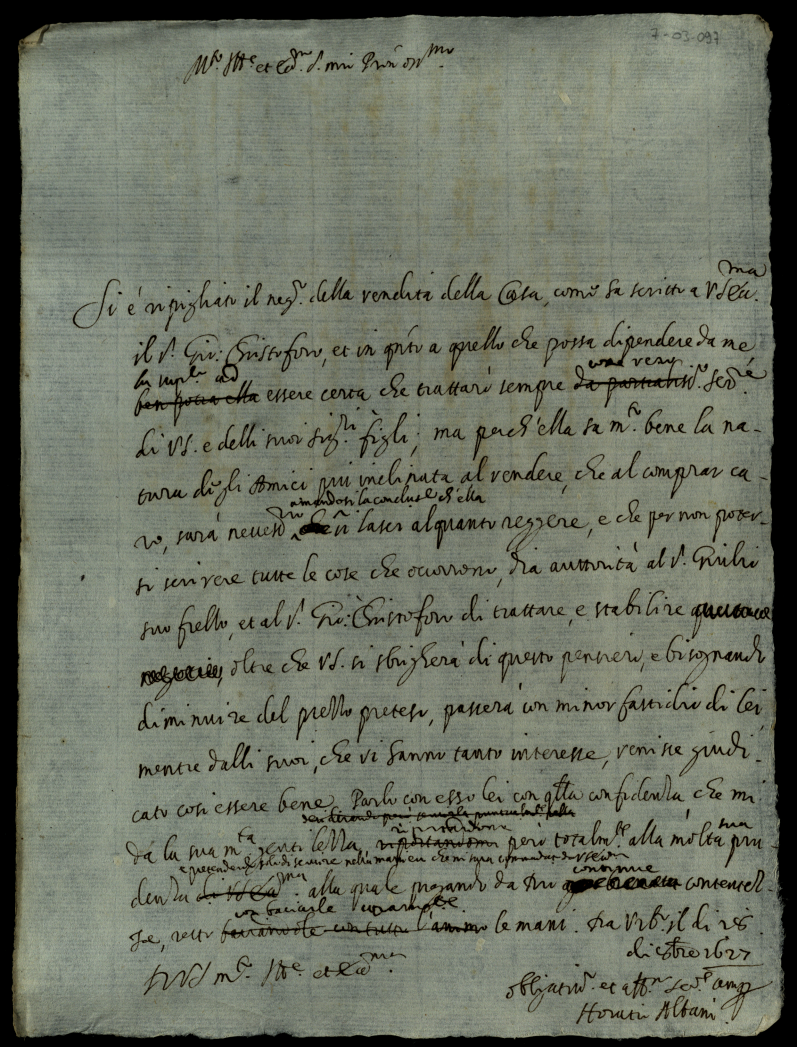 7-03-097
Si è ripigliato il neg.o della vendita della Casa, come ha scritto a V S Ecc.ma
il S.r Gio: Christoforo, et in q.nto a quello che possa dipendere da me
la suppl.o ad come vero
ben potrà ella essere certa che trattarò sempre da partialiss.o ser.re
di V S. e delli suoi sig.ri figli; ma perch'ella sa m.to bene la na-
tura degli Amici più inclinata al vendere, che al comprar ca-
amandosi la conclus.e ch'ella
ro, sarà necess.rio che vi lasci alquanto reggere, e che per non poter-
si scrivere tutte le cose che occorrono, dia auttorità al S.r Giulio
suo frello, et al S.r Gio: Christoforo di trattare, e stabilire
negocio, oltre che V S. si sbrigherà di questo pensiero, e bisognando
diminuire del prezzo preteso, passerà con minor fastidio di lei,
mentre dalli suoi, che vi hanno tanto interesse, veniste giudi-
cato così essere bene. Parlo con esso lei con q.lla confidenza che mi
dà la sua m.ta gentilezza, riportandomi però totalm.te alla molta sua pru-
denza di V S Ecc.ma alla quale pregando da Dio continue contentez-
ze, resto con baciarle l'animo le mani. Da Urb.o il dì 28
di 8bre 1627
Di V S m.to Ill.e et Ecc.ma
obligatiss.o et aff.mo ser.re
Horatio Albani